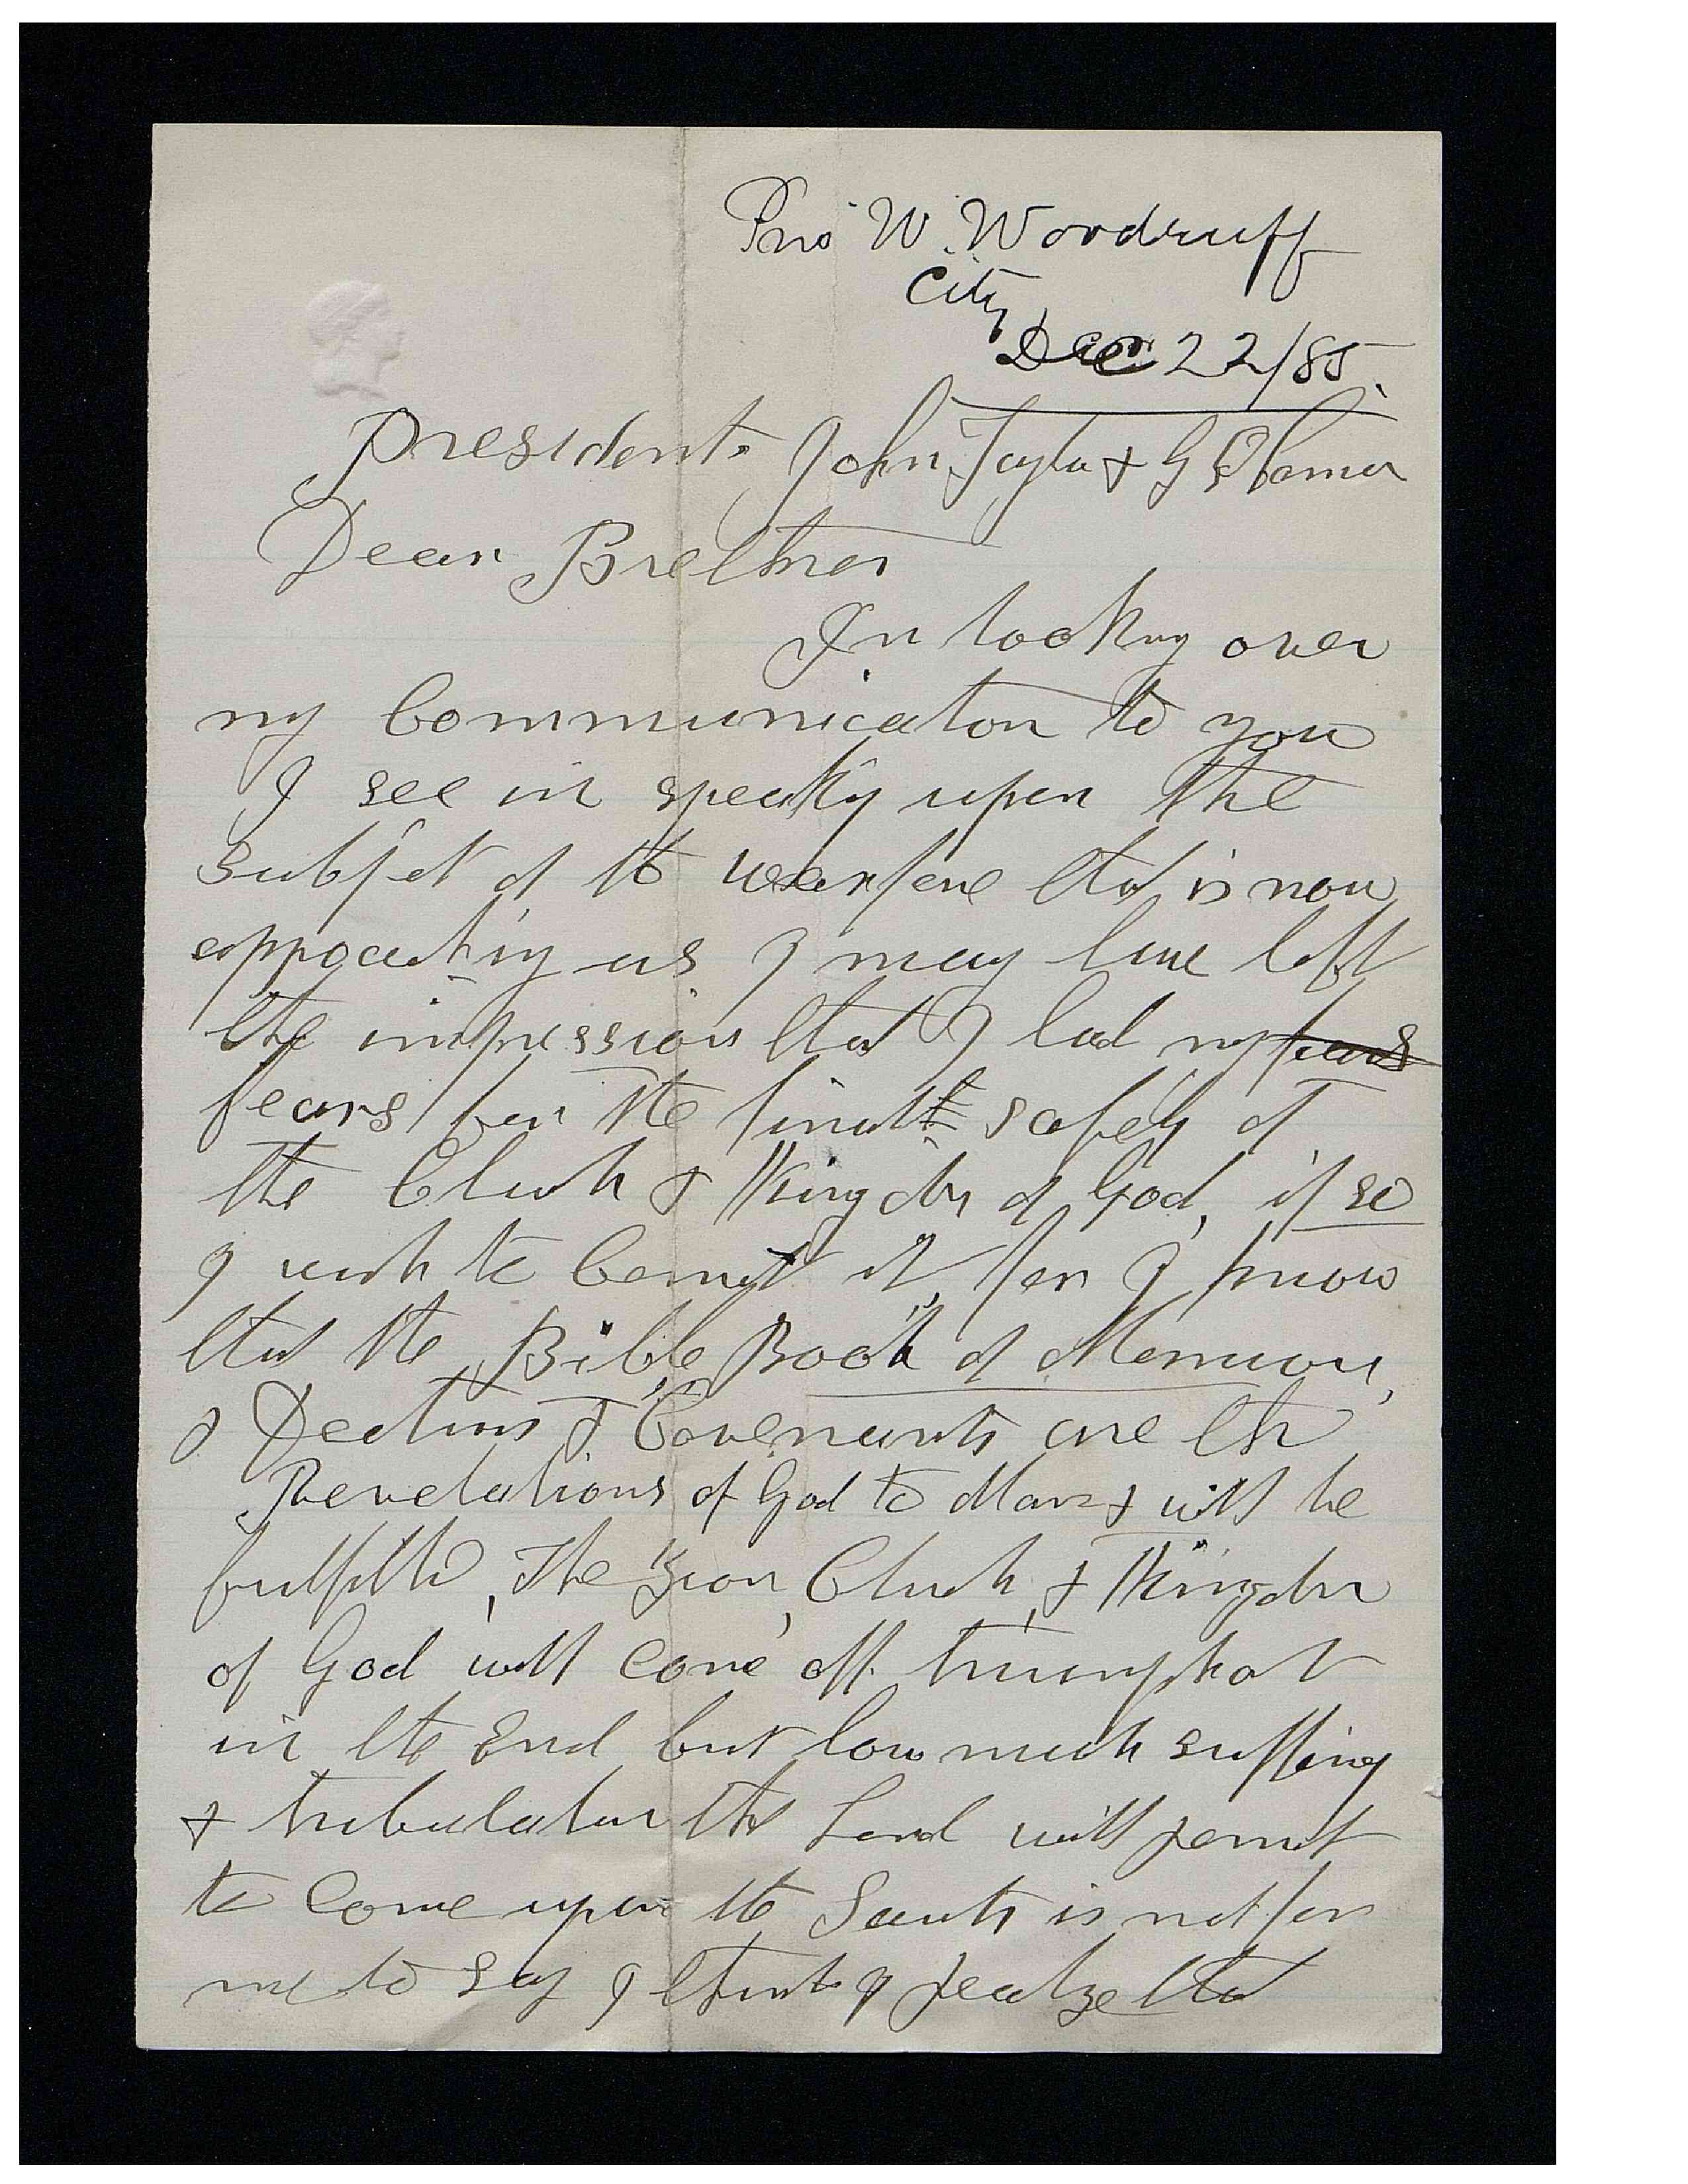 Pres W. Woodruff
City
Dec 22/85.
Presidents John Taylor & G Q Cannon
Dear Brethren
In looking over
my Communication to you
I see in speaking upon the
subject of the warfare that is now
approaching us I may have left
the impression that I had my fears
fears for the final safety of
the Church & Kingdom of God, if so
I wish to Correct it, for I know
that the Bible, Book of Mormon,
& Doctrins & Covenants are the
Revelations of God to Man & will be
fulfilled, The Zion, Church, & Kingdom
of God will come off triumphant
in the End but how much suffering
& tribulation the Lord will permit
to Come upon the Saints is not for
me to say I think I realize that